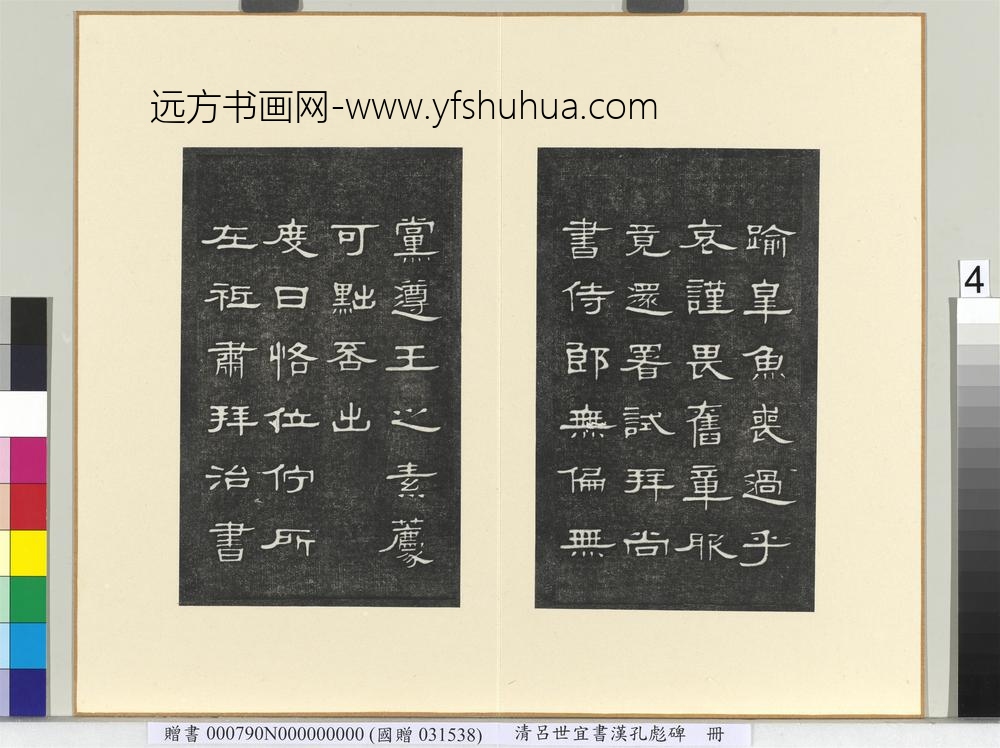 远方书画网-www.yfshuhua.com
踰皐魚喪過乎
哀謹畏舊章服
竟還署試拜尚
書侍郎無偏無
黨遵王之素薦
可黜否出
度日恪位佇所
在祗肅拜治書
4
贈書 000790N000000000 (國贈 031538) 清呂世宜書漢孔彪碑 冊